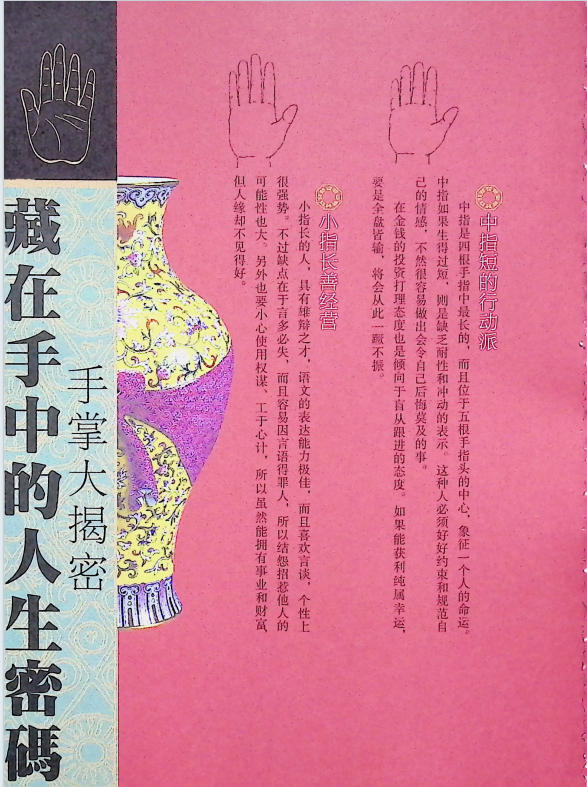 中指短的行动派
中指是四根手指中最长的，而且位于五根手指头的中心，象征一个人的命运。
中指如果生得过短，则是缺乏耐性和冲动的表示。这种人必须好好约束和规范自
己的情感，不然很容易做出会令自己后悔莫及的事。
在金钱的投资打理态度也是倾向于盲从跟进的态度。如果能获利纯属幸运，
要是全盘皆输，将会从此一蹶不振。
小指长善经营
小指长的人，具有雄辩之才，语文的表达能力极佳，而且喜欢言谈，个性上
很强势。不过缺点在于言多必失，而且容易因言语得罪人，所以结怨招惹他人的
可能性也大。另外也要小心使用权谋、工于心计，所以虽然能拥有事业和财富，
但人缘却不见得好。
手掌大揭密
藏在手中的人生密碼